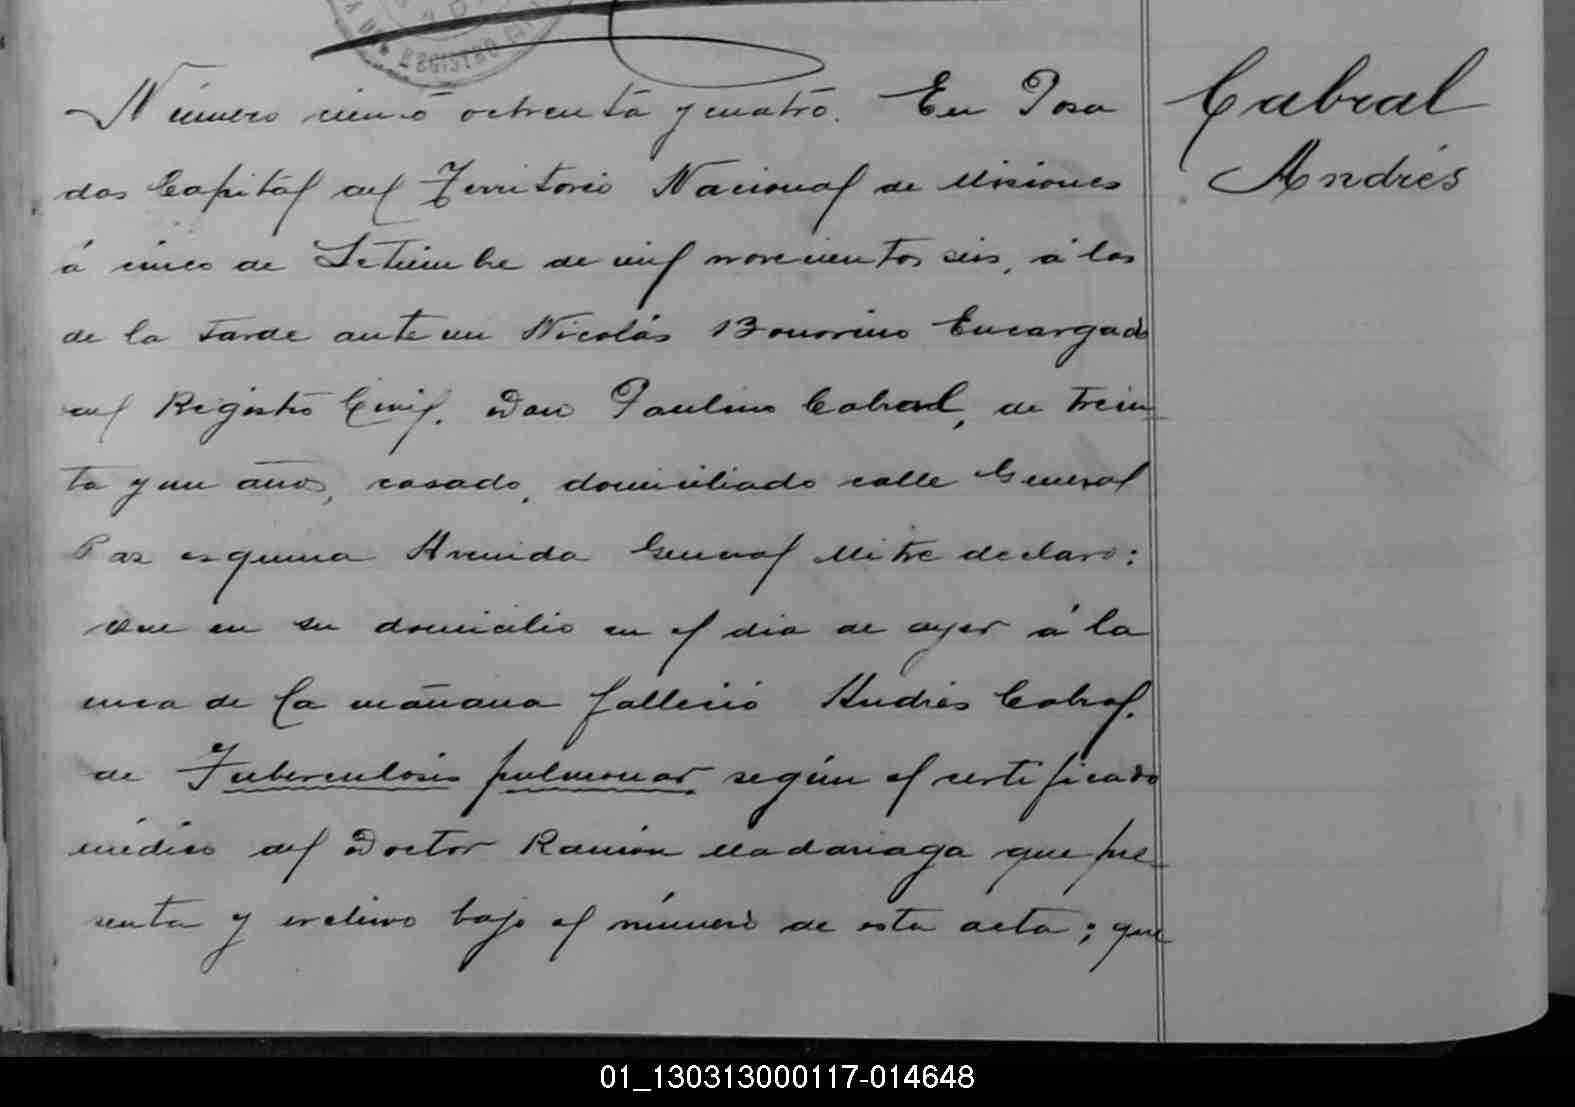 REGISTRO
Número ciento ochenta y cuatro. En Posa
das Capital del Territorio Nacional de Misiones
á cinco de Setiembre de mil novecientos seis, á las
de la tarde ante mi Nicolás Bonorino Encargado
del Registro Civil, Don Paulino Cabral, de trein
ta y un años, casado, domiciliado calle General
Paz esquina Avenida General Mitre declaro:
Que en su domicilio en el dia de ayer á la
una de la mañana falleció Andrés Cabral,
de Tuberculosis pulmonar según el certificado
médico del Doctor Ramón Madariaga que pre
senta y archivo bajo el número de esta acta; que
Cabral
Andrés
01_130313000117-014648